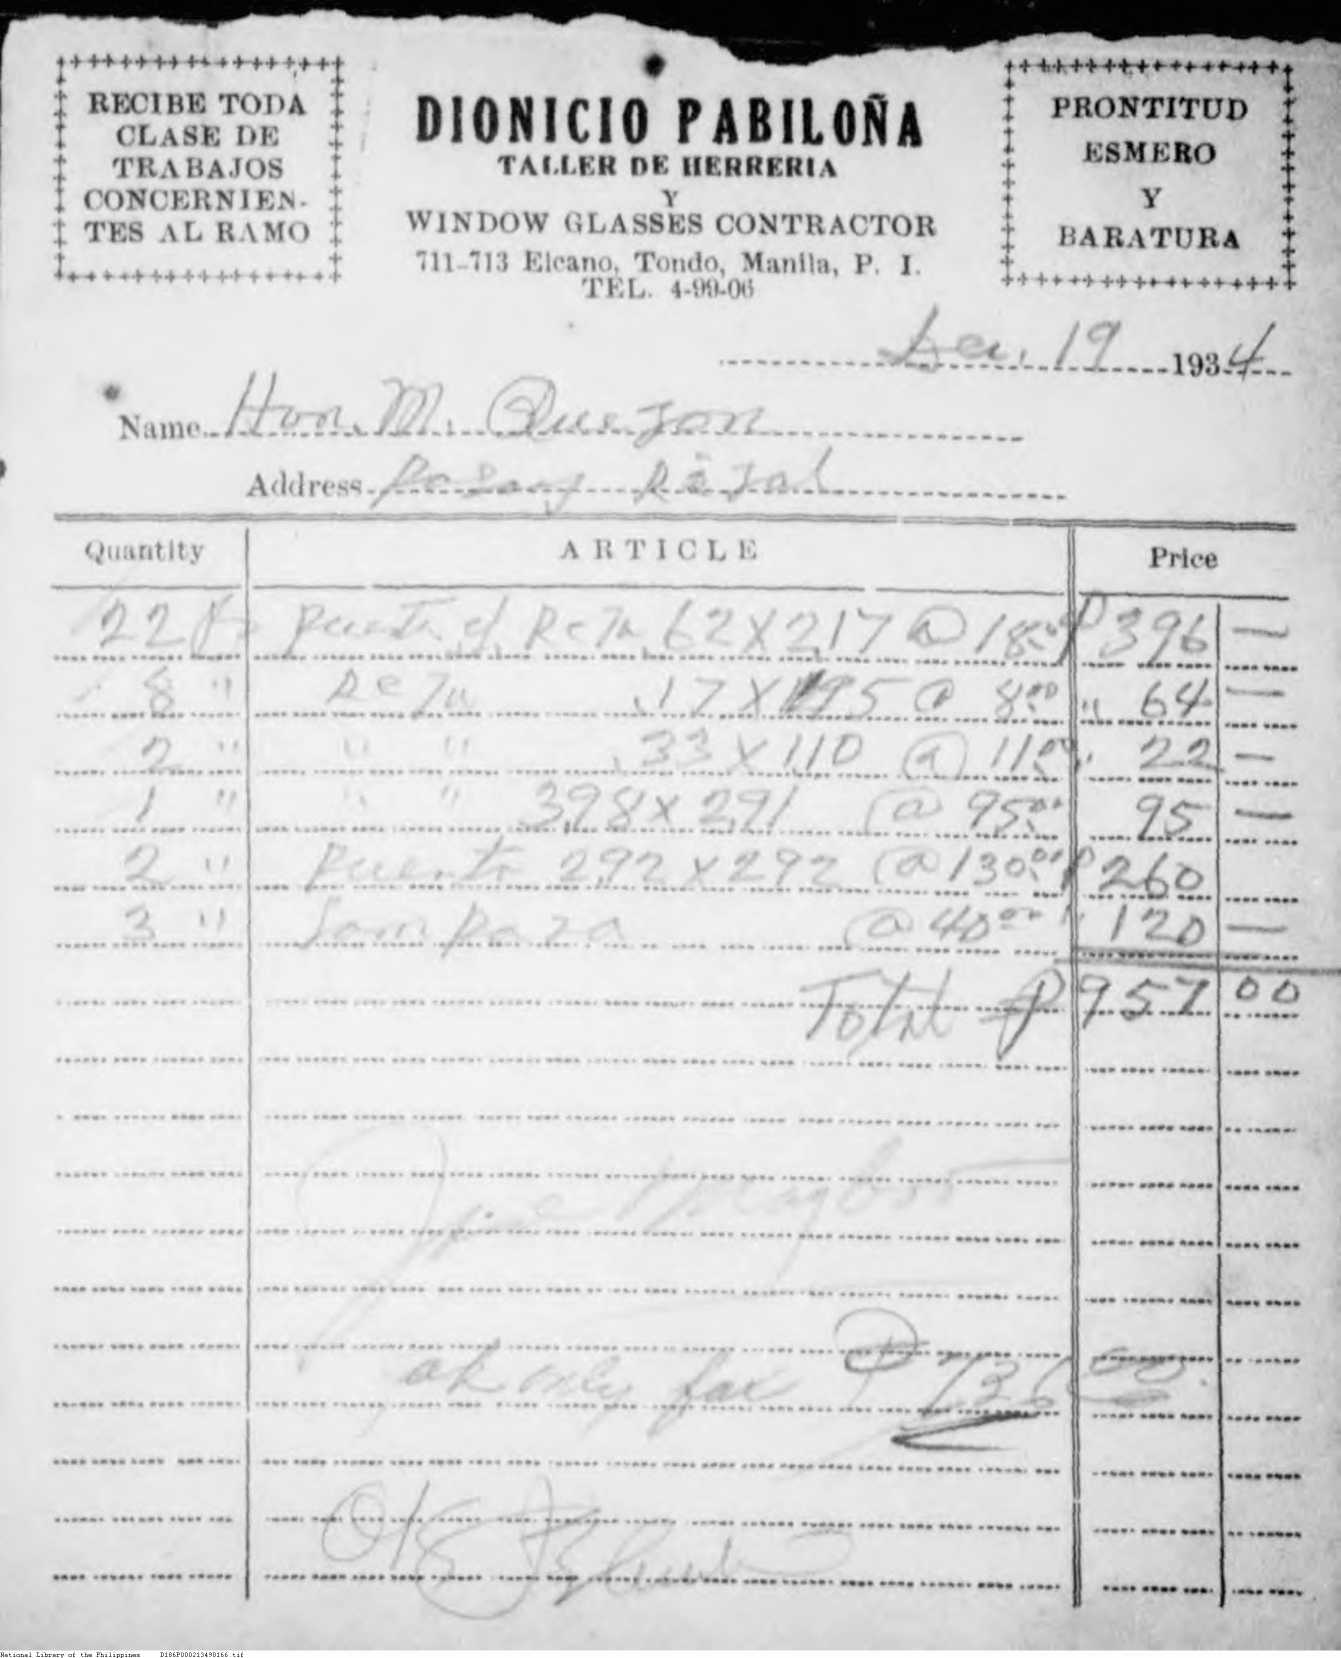 RECIBE TODA
CLASE DE
TRABAJOS
CONCERNIEN-
TES AL RAMO
DIONICIO PABILOÑA
TALLER DE HERRERIA
Y
WINDOW GLASSES CONTRACTOR
711-713 Elcano, Tondo, Manila, P. I.
TEL. 4-99-06
PRONTITUD
ESMERO
Y
BARATURA
Dec. 19 1934
Name Hon. M. Quezon
Address Pasay Rizal
Quantity ARTICLE Price
22 Puerta d. Reja .62 X 2.17 @ 18.00 ₱ 396 —
8 " Reja .17 X 1.95 @ 8.00 " 64 —
2 " " " .33 X 1.10 @ 11.00 " 22 —
1 " " " 3.98 X 2.91 @ 95.00 95 —
2 " Puerta 2.92 X 2.92 @ 130.00 ₱ 260
3 " @ 40.00 " 120 —
Total ₱ 957 00
ok only for ₱ 736.00
OK
National Library of the Philippines D186P000213498166.tif